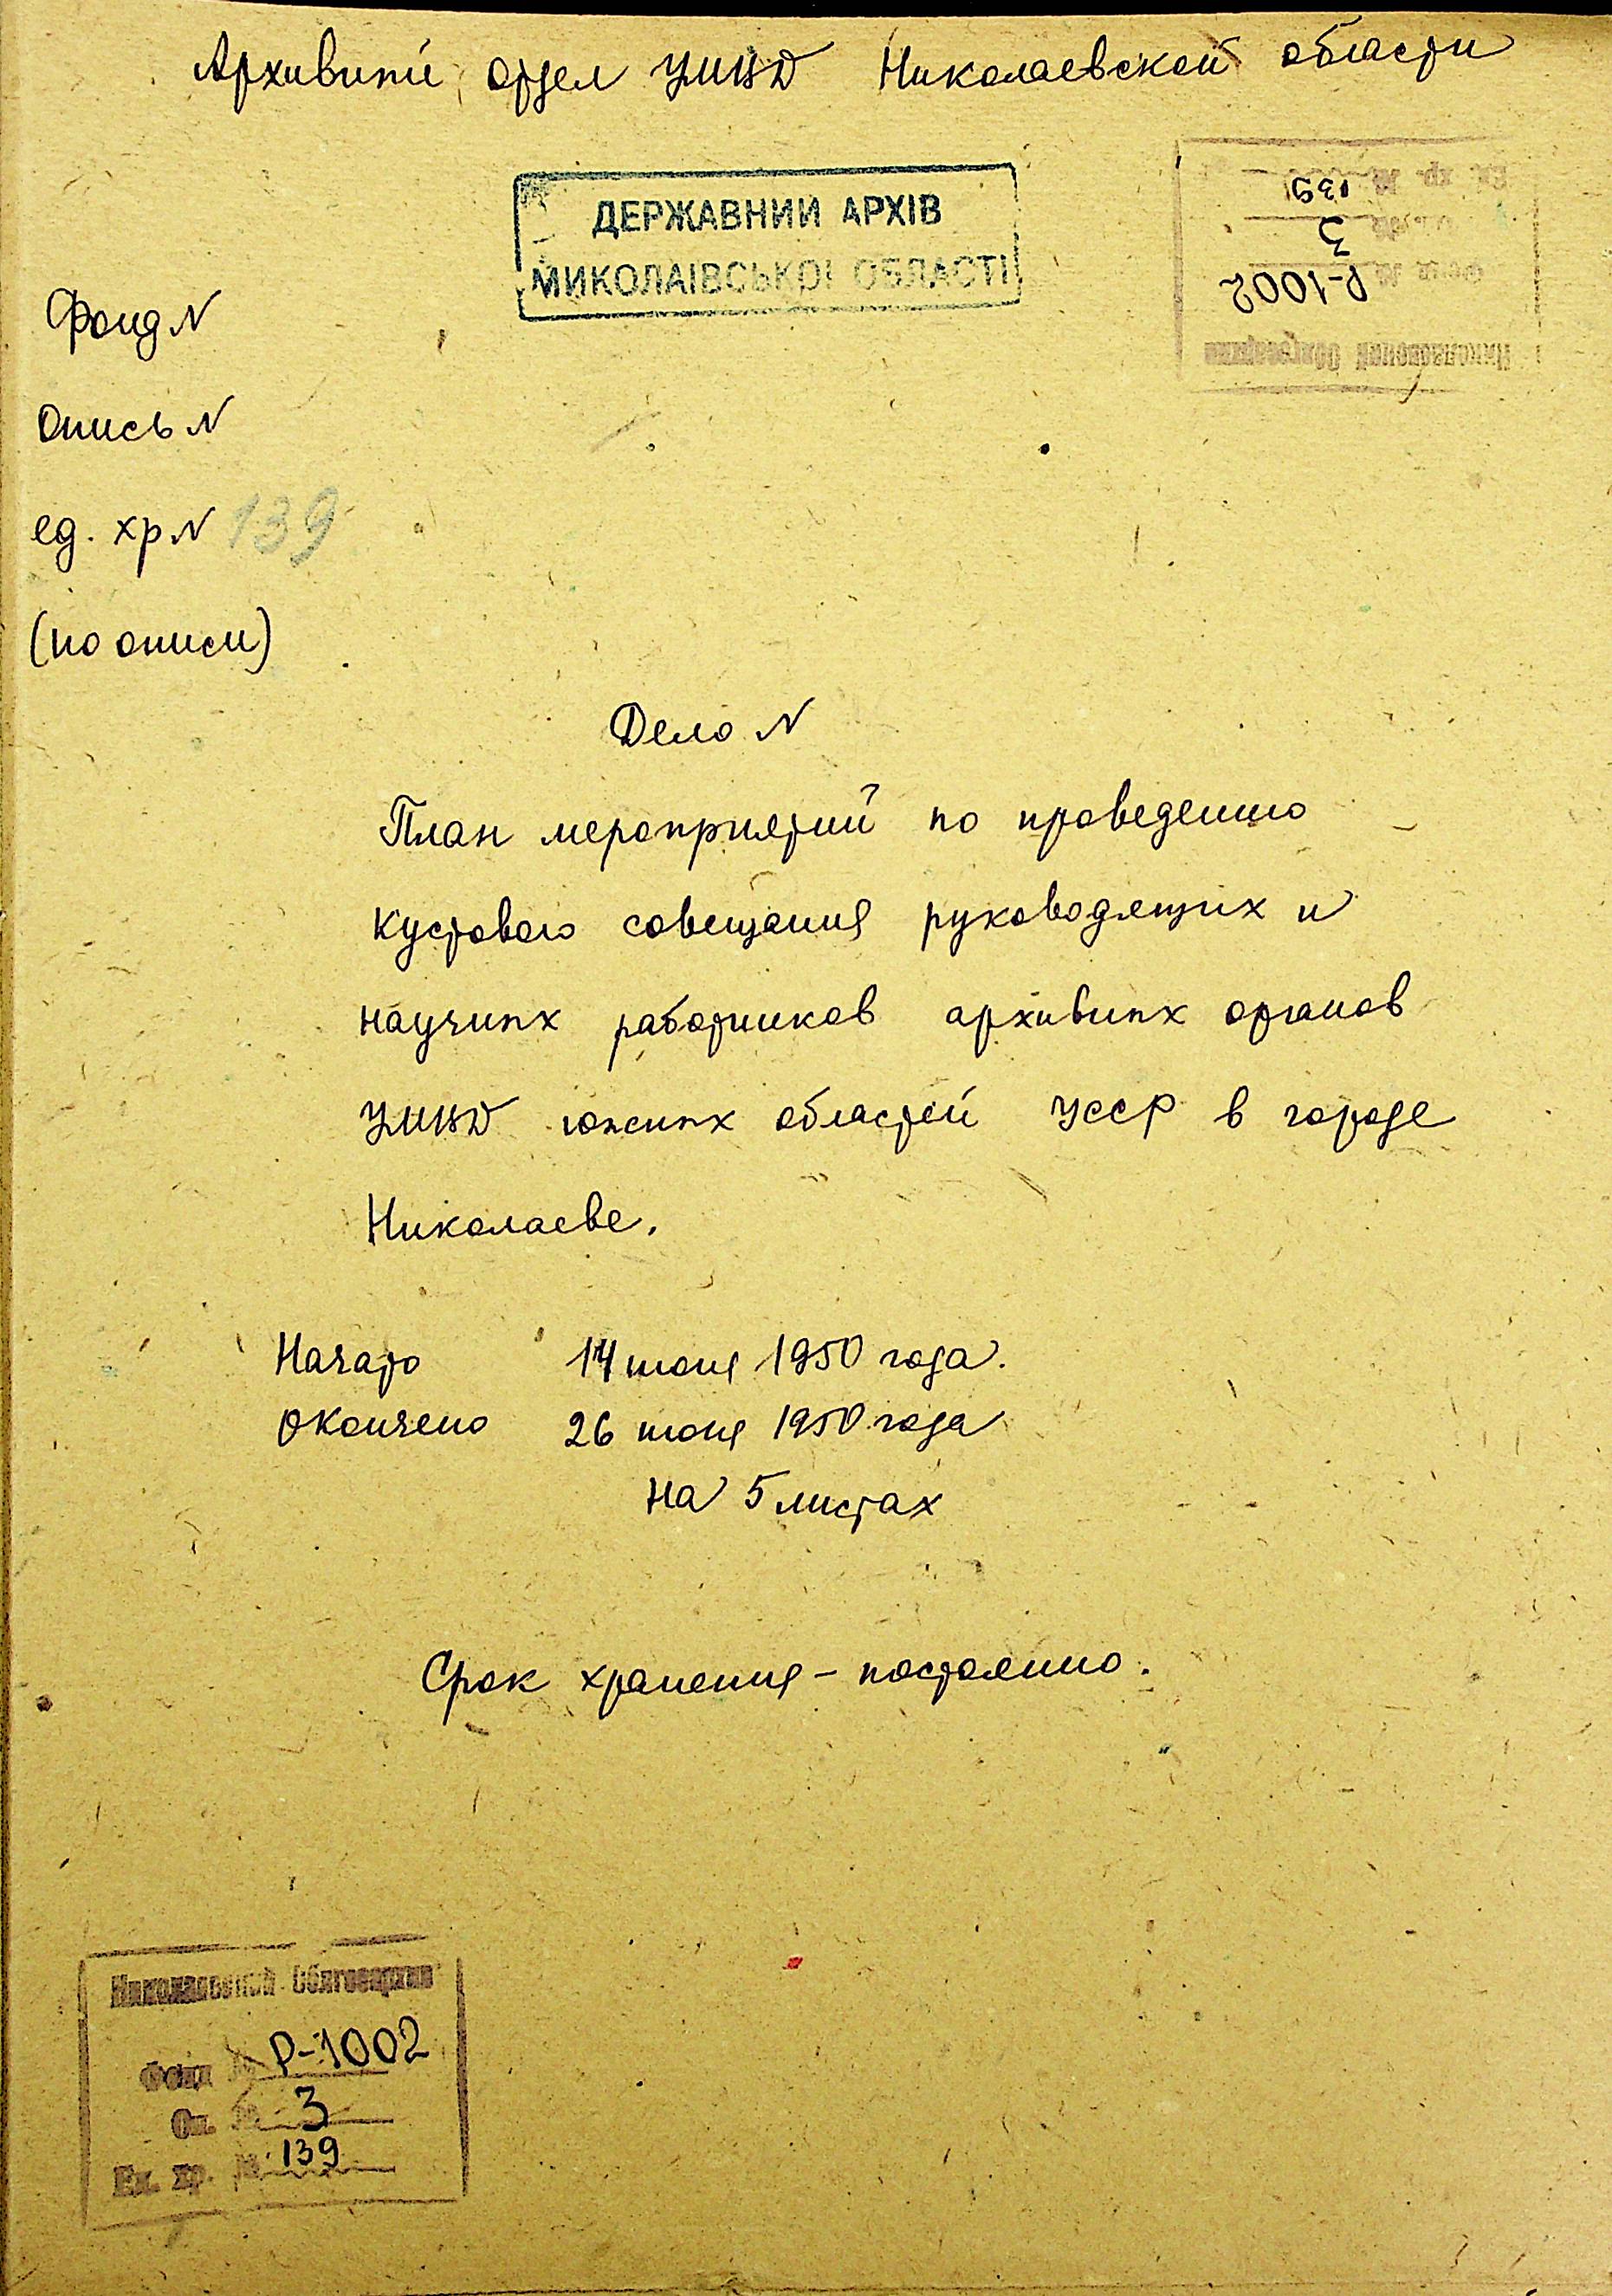 Архивный отдел УМВД Николаевской области
ДЕРЖАВНИЙ АРХІВ
МИКОЛАЇВСЬКОЇ ОБЛАСТІ
Ед. хр. № 139
Оп. № 3
Фонд № Р-1002
Николаевский Облгосархив
Фонд N
Опись N
ед. хр N 139
(по описи)
Дело N
План мероприятий по проведению
кустового совещания руководящих и
научных работников архивных органов
УМВД южных областей УССР в городе
Николаеве.
Начато 14 июня 1950 года.
Окончено 26 июня 1950 года
на 5 листах
Срок хранения – постоянно.
Николаевский Облгосархив
Фонд № Р-1002
Оп. № 3
Ед. хр. № 139